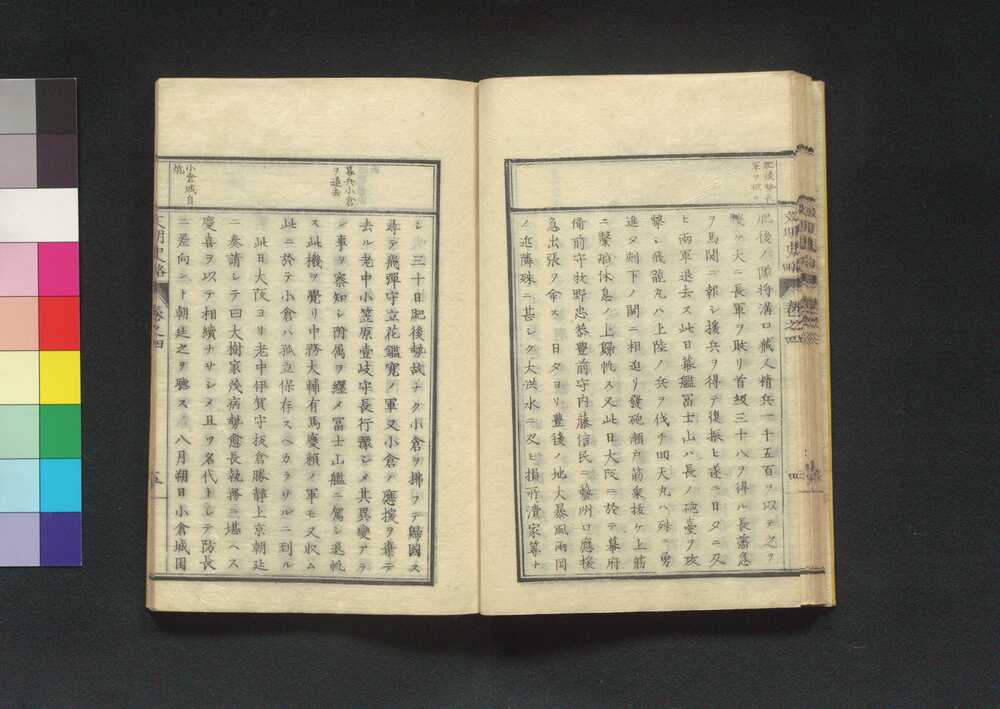 肥後ノ隊將溝口蔵人精兵一千五百ヲ以テ之ヲ
ケ大ニ長軍ヲ敗リ首級三十八ヲ得ル長藩急
ヲ馬關ニ報シ援兵ヲ得テ復振ヒ遂ニ日夕ニ及
ヒ兩軍退去ス此日幕艦冨士山ハ長ノ砲臺ヲ攻
撃シ飛龍丸ハ上陸ノ兵ヲ伐チ回天丸ハ殊ニ勇
進夕刻下ノ關ニ相迫リ發砲瀬戸筋乗抜ケ上筋
ニ繋舶休息ノ上歸帆ス又此日大阪ニ於テ幕府
備前守牧野忠恭豊前守内藤信民ニ藝州口應援
急出張ヲ命ス 日夕ヨリ豊後ノ地大暴風雨岡
ノ近隣殊ニ甚シク大洪水ニ及ヒ損所潰家等ナ
幕兵小倉
ヲ遠去
小倉城自
焼
シ 三十日肥後勢故ナク小倉ヲ拂フテ歸國ス
尋テ飛彈守立花鑑寛ノ軍又小倉ノ應援ヲ棄テ
去ル老中小笠原壹岐守長行豫シメ其異變アラ
ン事ヲ察知シ附属ヲ纒メ冨士山艦ニ駕シ退帆
ス此機ヲ覺リ中務大輔有馬慶頼ノ軍モ又収ム
此ニ於テ小倉ハ孤立保存スヘカラサルニ到ル
此日大阪ヨリ老中伊賀守板倉勝静上京朝廷
ニ奏請シテ曰大樹家茂病勢愈長執務ニ堪ヘス
慶喜ヲ以テ相續ナサシメ且ツ名代トシテ防長
ニ差向シト朝廷之ヲ聴ス 八月朔日小倉城困
五